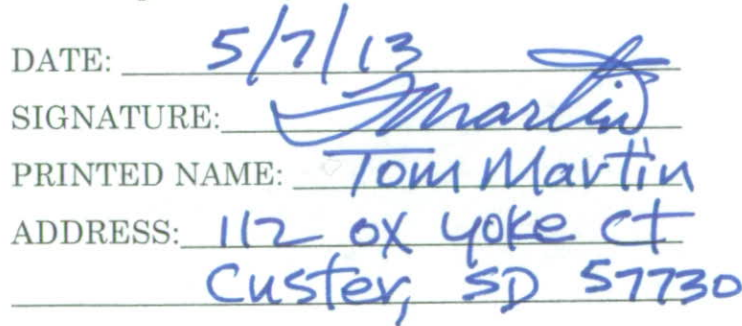 DATE: 5/7/13
SIGNATURE: TMartin
PRINTED NAME: Tom Martin
ADDRESS: 112 ox yoke ct
Custer, SD 57730